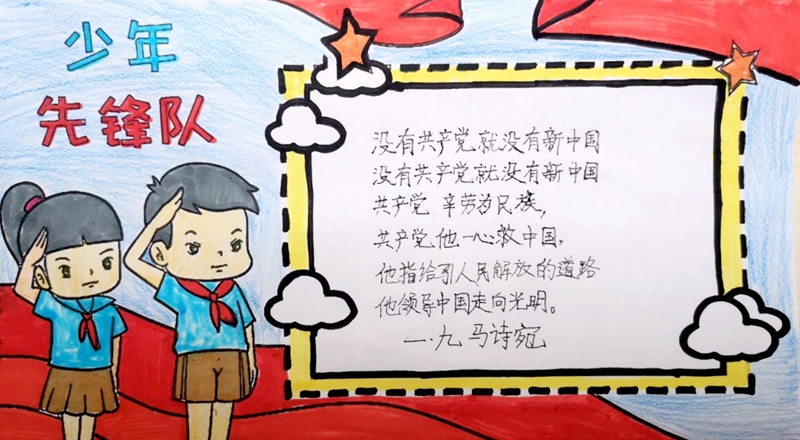 少年
先锋队
没有共产党就没有新中国
没有共产党就没有新中国
共产党 辛劳为民族，
共产党他一心救中国，
他指给引人民解放的道路
他领导中国走向光明。
一.九 马诗宛